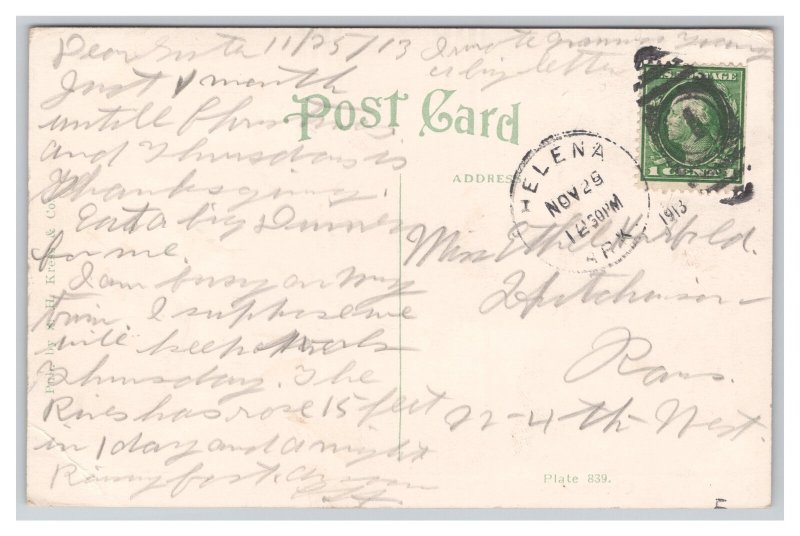 Dear Sister 11/25/13
I wrote Grandma Young
a big letter
Just 1 month
untill Christmas
and Thursday is
Thanksgiving.
Eat a big Dinner
for me.
I am busy on my
train I suppose we
will keep
Thursday. The
River has rose 15 feet
in 1 day and a night
Raining fast.
Post Card
ADDRESS
U.S. POSTAGE
1 CENT 1
HELENA
NOV 29
12 30PM
ARK.
1913
Miss Ethel
Hutchinson
Kans.
4th West.
Pub. by S. H. Kress & Co.
Plate 839.